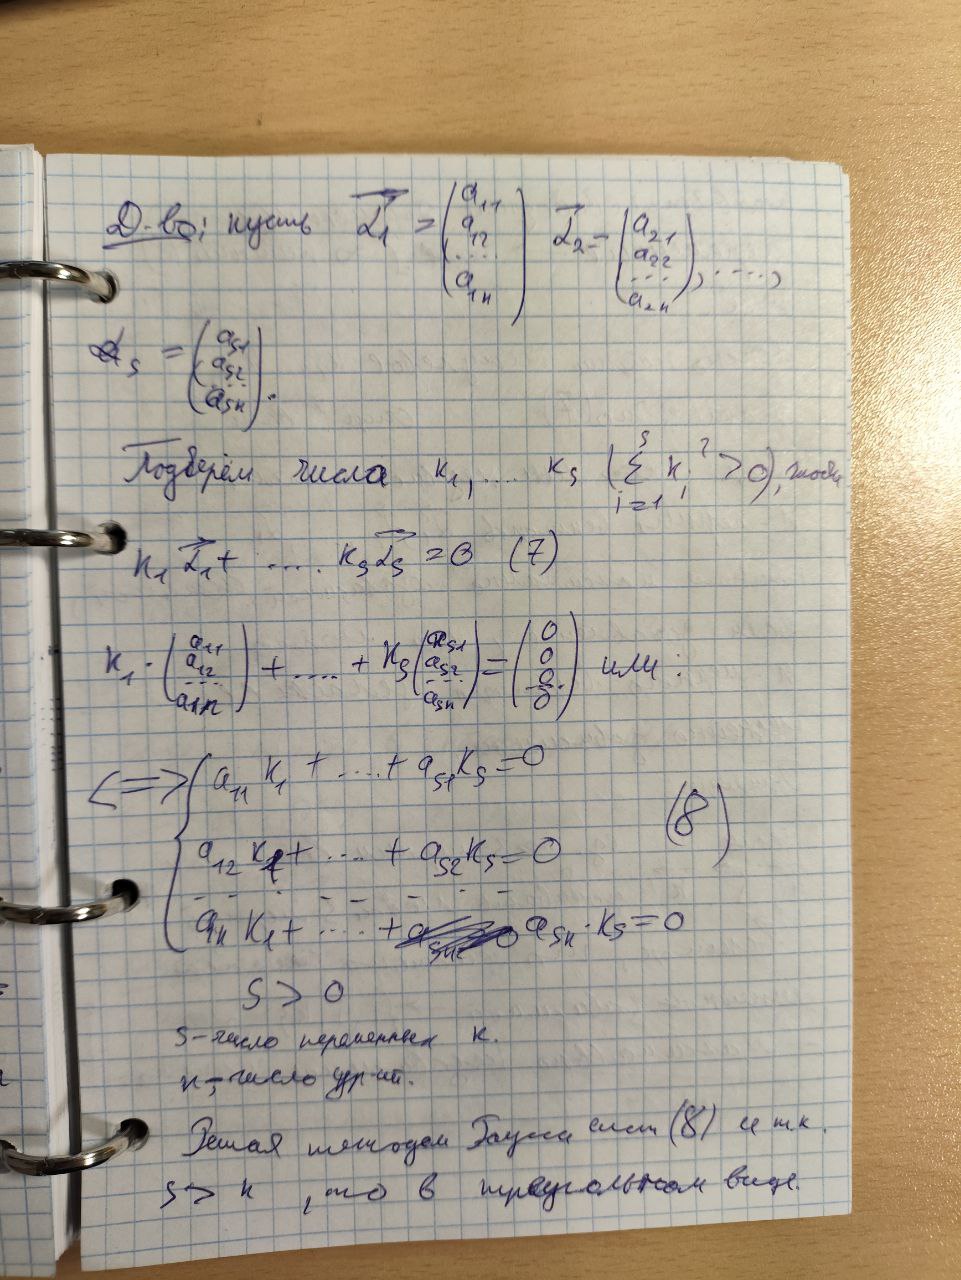 Д-во: пусть α₁ = (a₁₁ a₁₂ ... a₁ₙ) α₂ = (a₂₁ a₂₂ ... a₂ₙ), ....,
α_s = (a_s1 a_s2 ... a_sn).
Подберём числа к₁, .... к_s (∑_{i=1}^{s} к_i² > 0), чтобы
к₁ α₁ + .... к_s α_s = 0 (7)
к₁ · (a₁₁ a₁₂ ... a₁ₙ) + .... + к_s (a_s1 a_s2 ... a_sn) = (0 0 0 0) или:
<=> { a₁₁ к₁ + .... + a_s1 к_s = 0
(8)
a₁₂ к₁ + .... + a_s2 к_s = 0
- - - - - - - -
a₁ₙ к₁ + .... + a_sn · к_s = 0
s > 0
s - число переменных к.
n - число ур-ий.
Решая методом Гаусса сист (8) и т.к.
s > n, то в треугольном виде.